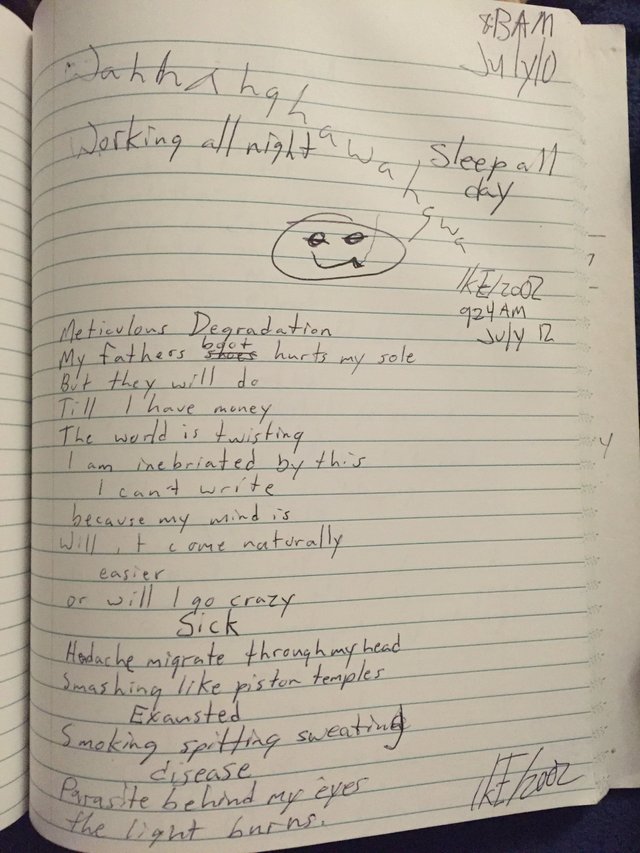 8BAM
July 10
Wahhahghawahgwa
Working all night
Sleep all
day
IKE/2002
924AM
July 12
Meticulous Degradation
My fathers shoes boot hurts my sole
But they will do
Till I have money
The world is twisting
I am inebriated by this
I cant write
because my mind is
Will it come naturally
easier
or will I go crazy
Sick
Hedache migrate through my head
Smashing like piston temples
Exausted
Smoking spitting sweating
disease
Parasite behind my eyes
the light burns.
IKE/2002